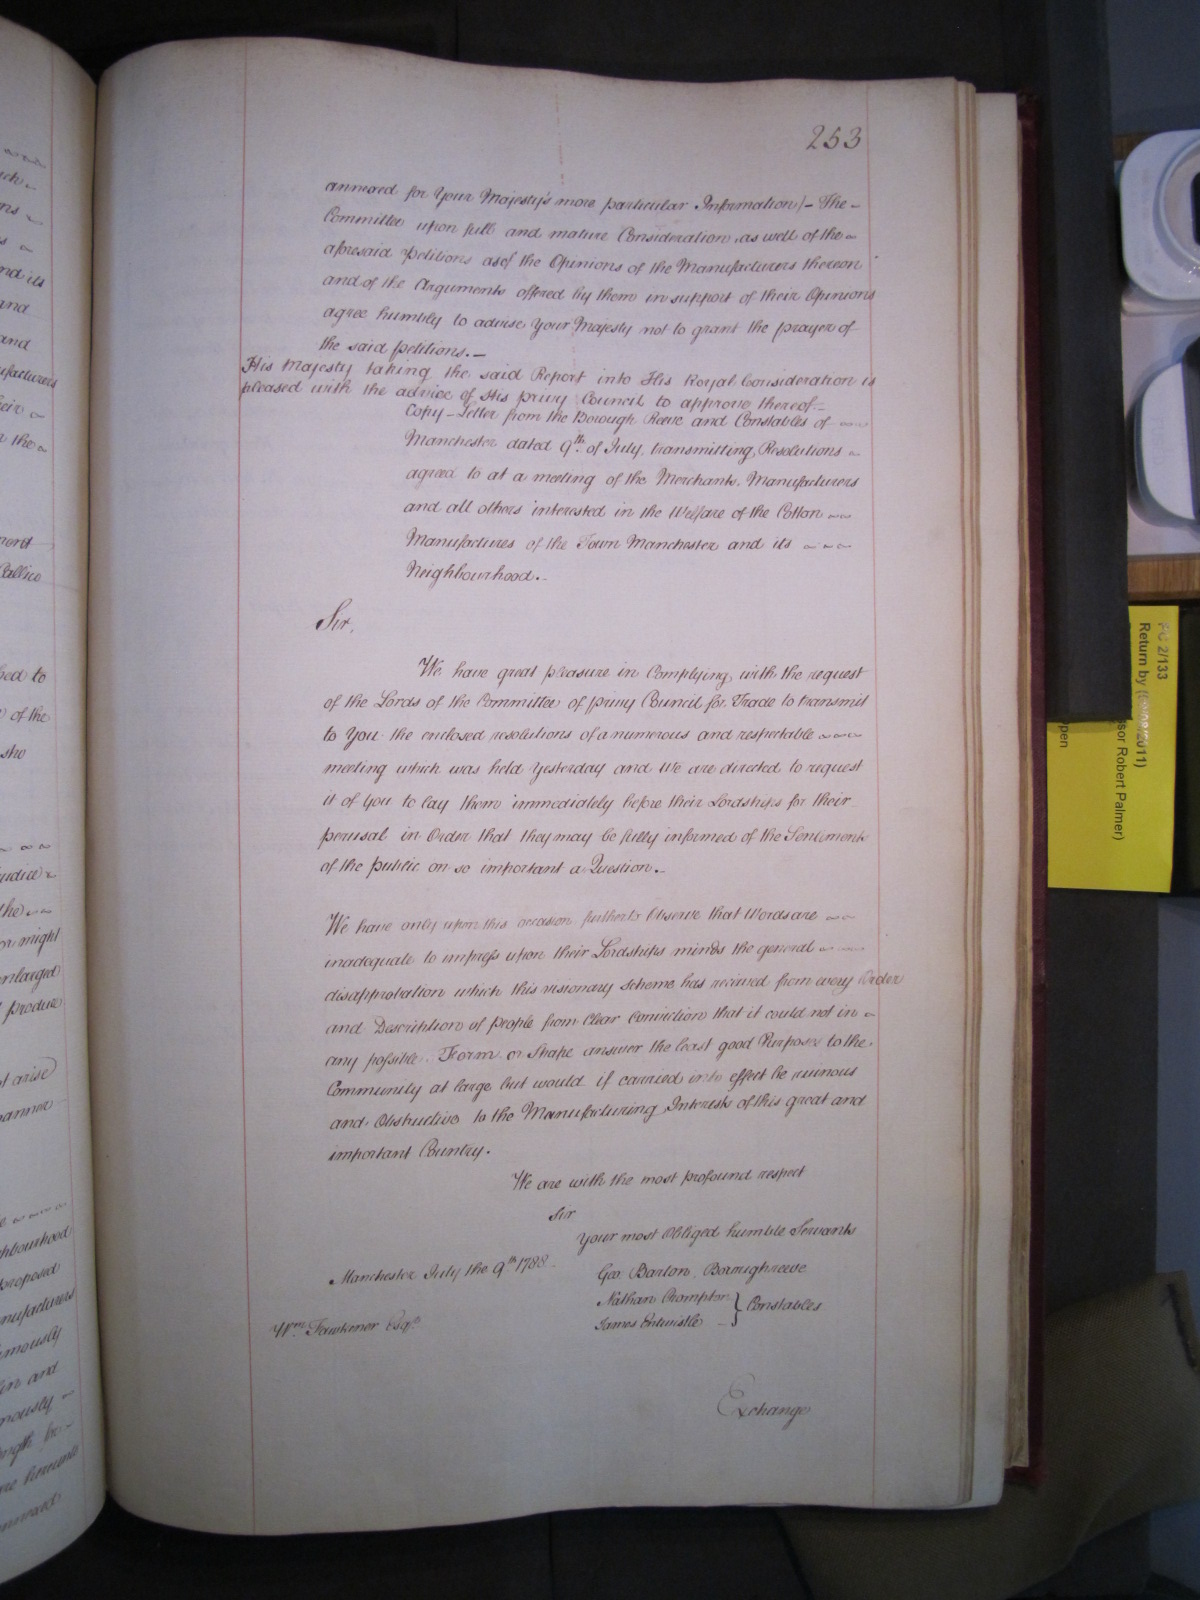 253
annexed for Your Majesty's more particular Information/- The
Committee upon full and mature Consideration as well of the
aforesaid Petitions as of the Opinions of the Manufacturers thereon
and of the Arguments offered by them in support of their Opinions
agree humbly to advise Your Majesty not to grant the prayer of
the said petitions.-
His Majesty taking the said Report into His Royal Consideration is
pleased with the advice of His Privy Council to approve thereof-
Copy-Letter from the Borough Reeve and Constables of
Manchester dated 9th. of July, transmitting, Resolutions
agreed to at a meeting of the Merchants, Manufacturers
and all others interested in the Welfare of the Cotton
Manufactures of the Town Manchester and its
Neighbourhood.-
Sir,
We have great pleasure in Complying with the request
of the Lords of the Committee of Privy Council for Trade to transmit
to You the enclosed resolutions of a numerous and respectable
meeting which was held Yesterday and We are directed to request
it of You to lay them immediately before their Lordships for their
perusal in Order that they may be fully informed of the Sentiments
of the public on so important a Question.-
We have only upon this occasion further to Observe that Words are
inadequate to impress upon their Lordships minds the general
disapprobation which this visionary Scheme has received from every Order
and Description of People from Clear Conviction that it could not in
any possible Form or Shape answer the least good Purposes to the
Community at large but would if carried into effect be ruinous
and Obstructive to the Manufacturing Interests of this great and
important Country.
We are with the most profound respect
Sir
Your most Obliged humble Servants
Manchester July the 9th 1788
Geo. Barton Boroughreeve
Nathan Crompton } Constables
James Entwistle
Wm. Fawkener Esqr.
Exchange
nd its
and
and
facturers
their
the
Callico
to
of the
the
might
enlarged
produce
arise
hbourhood
proposed
nufacturers
imously
in and
mously
PC 2/133
Return by (09/08/2011)
sor Robert Palmer)
pen